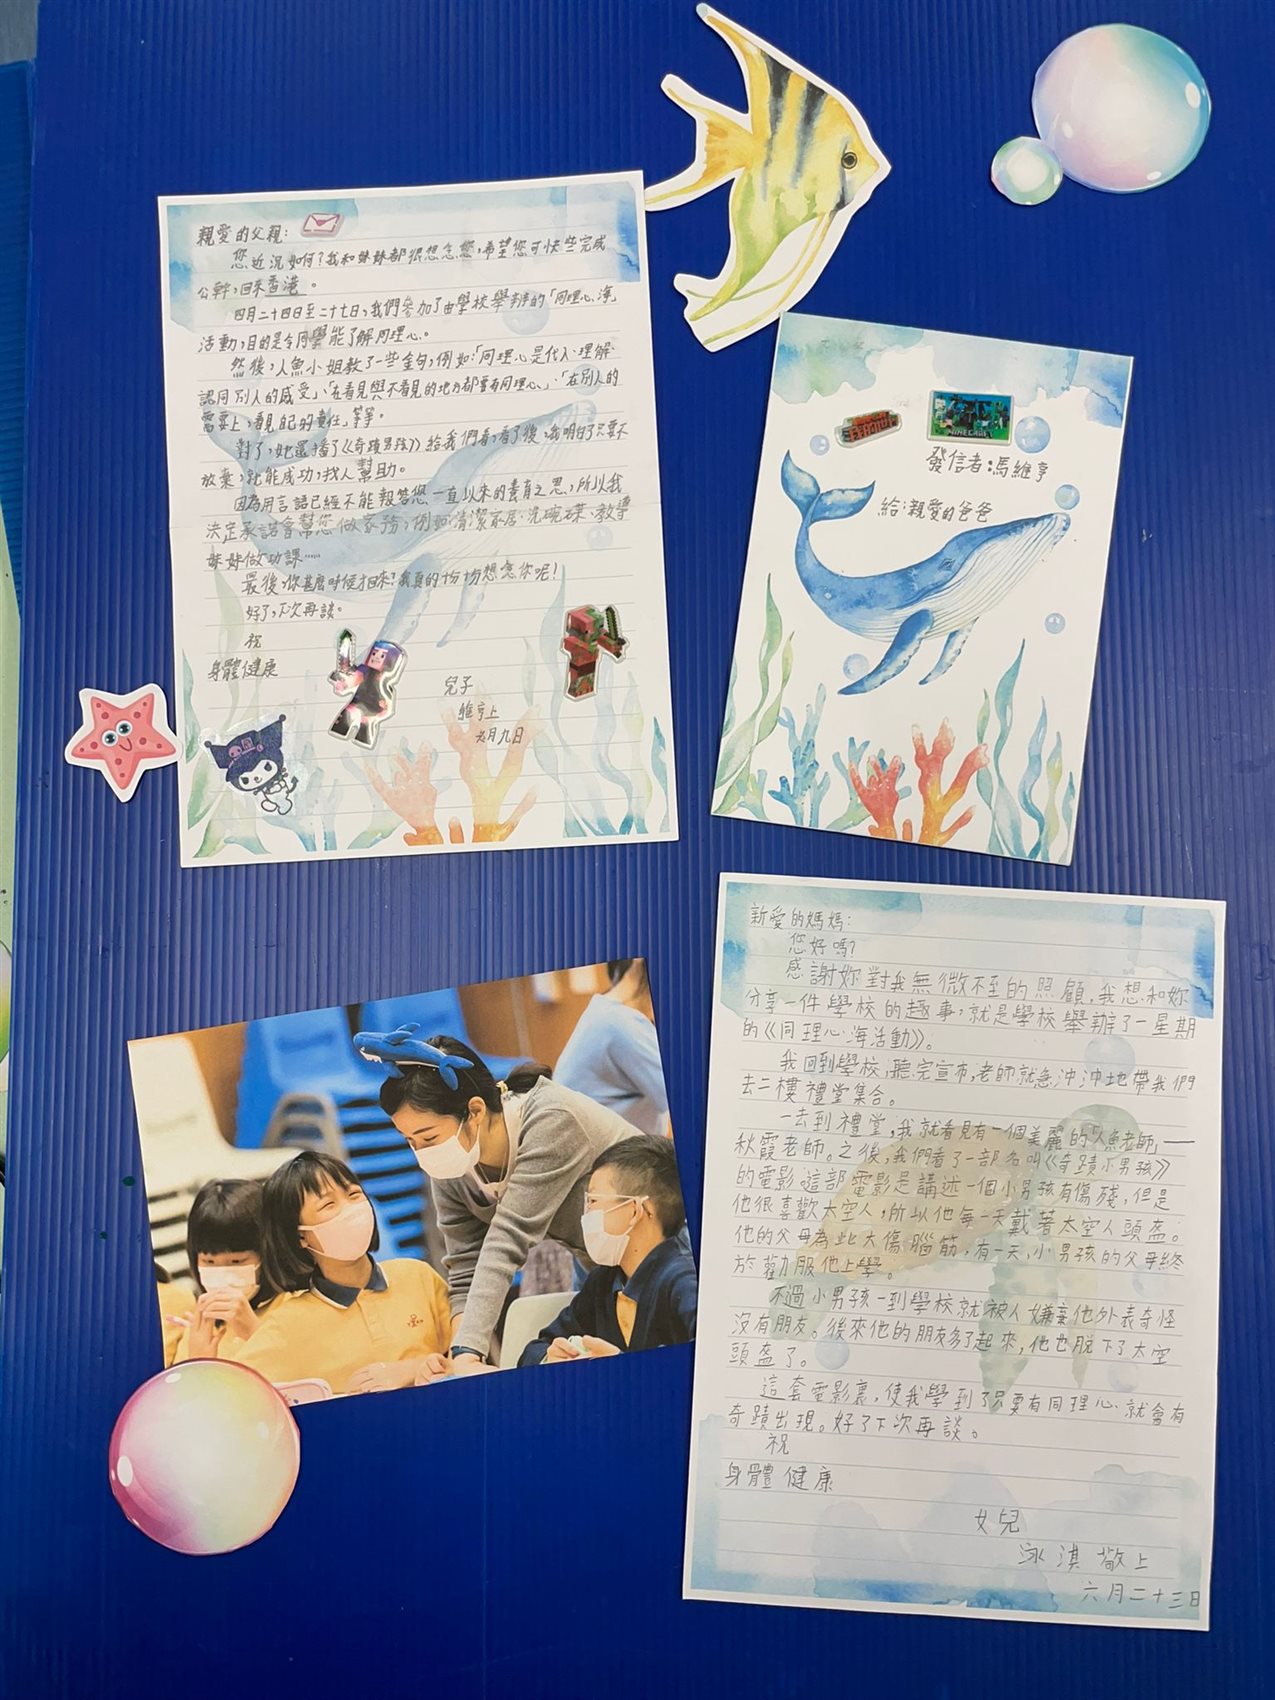 親愛的父親：
您近況如何？我和妹妹都很想念您，希望您可快些完成
公幹，回來香港。
四月二十四日至二十七日，我們參加了由學校舉辨的「同理心海」
活動，目的是令同學能了解同理心。
然後，人魚小姐教了一些金句，例如：「同理心是代入、理解
認同別人的感受」、「在看見與不看見的地方都要有同理心」、「在別人的
需要上，看見自己的責任」等等。
對了，她還播了《奇蹟男孩》給我們看，看了後，我明白了只要不
放棄，就能成功，找人幫助。
因為用言語已經不能報答您一直以來的養育之恩，所以我
決定承諾會幫您做家務，例如：清潔家居、洗碗碟、教導
妹妹做功課……
最後，你甚麼時候才回來？我真的十分十分想念你呢！
好了，下次再談。
祝
身體健康
兒子
維亨上
六月九日
MINECRAFT
發信者：馬維亨
給：親愛的爸爸
新愛的媽媽：
您好嗎？
感謝妳對我無微不至的照顧，我想和妳
分享一件學校的趣事，就是學校舉辦了一星期
的《同理心海活動》。
我回到學校，聽完宣布，老師就急沖沖地帶我們
去二樓禮堂集合。
一去到禮堂，我就看見有一個美麗的「人魚老師」——
秋霞老師。之後，我們看了一部名叫《奇蹟小男孩》
的電影。這部電影是講述一個小男孩有傷殘，但是
他很喜歡太空人，所以他每一天戴著太空人頭盔。
他的父母為此大傷腦筋，有一天，小男孩的父母終
於勸服他上學。
不過小男孩一到學校就被人嫌棄他外表奇怪
沒有朋友。後來他的朋友多了起來，他也脫下了太空
頭盔了。
這套電影裏，使我學到了只要有同理心就會有
奇蹟出現。好了下次再談。
祝
身體健康
女兒
泳淇敬上
六月二十三日